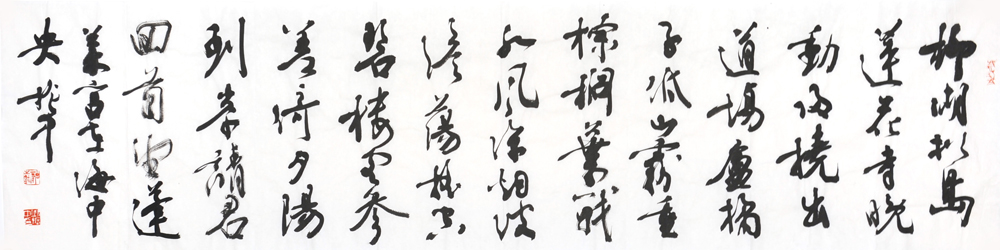 柳湖松島
蓮花寺晚
動歸橈出
道場盧橘
子低山霧重
棕櫚葉戰
水風涼烟波
澹蕩搖空
碧樓殿參
差倚夕陽
到岸請君
回首望蓬
萊宮在海中
央